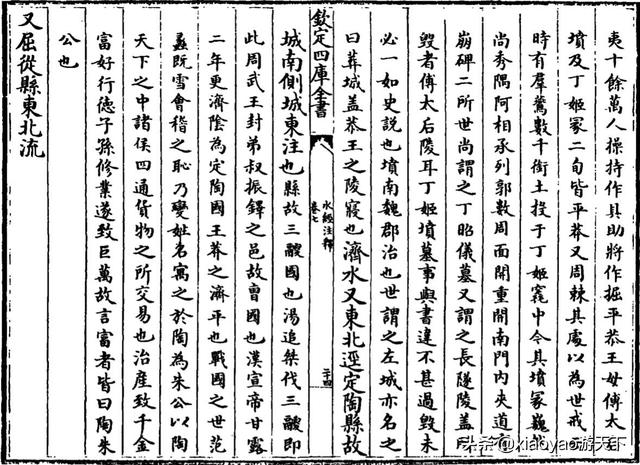 夷十餘萬人操持作具助將作掘平恭王母傅太
墳及丁姬冢二旬皆平莽又周棘其處以為世戒云
時有羣鷰數千銜土投于丁姬竁中今其墳冢巍然
尚秀隅阿相承列郭數周面開重門南門内夾道有
崩碑二所世尚謂之丁昭儀墓又謂之長隧陵蓋所
毀者傅太后陵耳丁姬墳墓事與書違不甚過毀未
必一如史說也墳南魏郡治也世謂之左城亦名之
曰葬城盖恭王之陵寢也濟水又東北逕定陶縣故
欽定四庫全書
水經注釋
卷七
二十四
城南側城東注也縣故三鬷國也湯追桀伐三鬷即
此周武王封弟叔振鐸之邑故曹國也漢宣帝甘露
二年更濟隂為定陶國王莽之濟平也戰國之世范
蠡既雪會稽之恥乃變姓名寓之於陶為朱公以陶
天下之中諸侯四通貨物之所交易也治産致千金
富好行徳子孫修業遂致巨萬故言富者皆曰陶朱
公也
又屈從縣東北流
头条@xiaoyao游天下